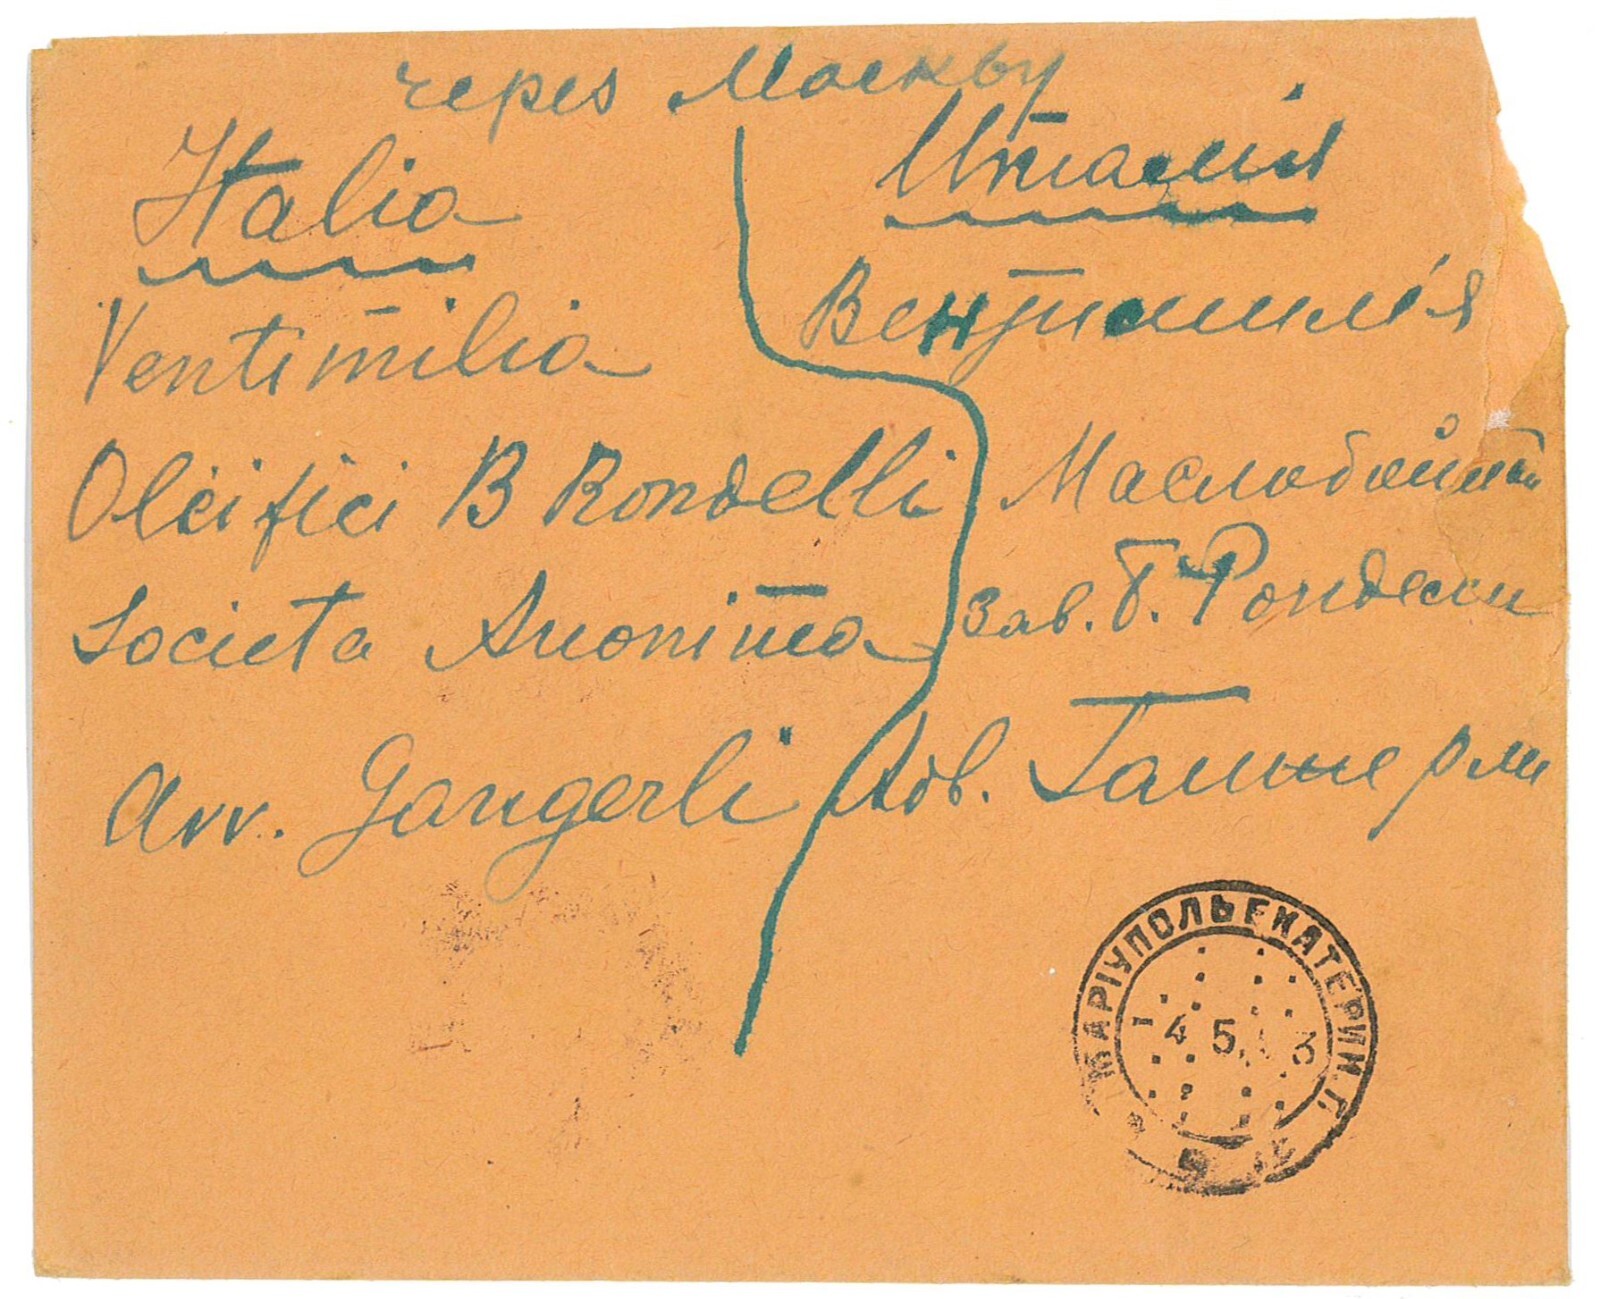 через Москву
Italia
Ventimilia
Oleifici B Rondelli
Societa Anonima
Avv. Gangerli
Италія
Вентимилія
Маслобойный
зав. Б. Рондели
Адв.
МАРІУПОЛЬ ЕКАТЕРИН. Г.
4 5 3